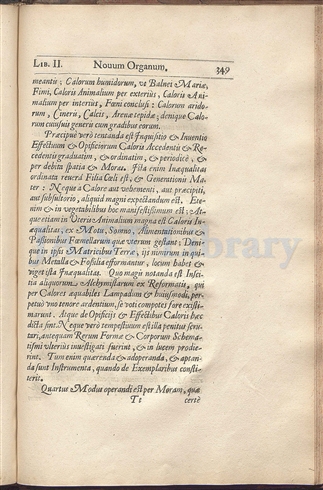 LIB. II. Novum Organum. 349
meantis; Calorum humidorum, ut Balnei Mariæ,
Fimi, Caloris Animalium per exterius, Caloris Ani-
malium per interius, Fœni conclusi: Calorum arido-
rum, Cineris, Calcis, Arenæ tepidæ; denique Calo-
rum cuiusvis generis cum gradibus eorum.
Præcipuè verò tentanda est Inquisitio & Inventio
Effectuum & Opificiorum Caloris Accedentis & Re-
cedentis graduatim, & ordinatim, & periodicè, &
per debita spatia & Moras. Ista enim Inæqualitas
ordinata reverâ Filia Cœli est, & Generationis Ma-
ter: Neque à Calore aut vehementi, aut præcipiti,
aut subsultorio, aliquid magni expectandum est. Ete-
nim & in vegetabilibus hoc manifestissimum est; At-
que etiam in Uteris Animalium magna est Caloris In-
æqualitas, ex Motu, Somno, Alimentationibus &
Passionibus Fœmellarum quæ uterum gestant; Deni-
que in ipsis Matricibus Terræ, iis nimirum in qui-
bus Metalla & Fossilia efformantur, locum habet &
viget ista Inæqualitas. Quo magis notanda est Insci-
tia aliquorum Alchymistarum ex Reformatis, qui
per Calores æquabiles Lampadum & huiusmodi, per-
petuò uno tenore ardentium, se voti compotes fore existi-
marunt. Atque de Opificijs & Effectibus Caloris hæc
dicta sint. Neque verò tempestivum est illa penitus scru-
tari, antequam Rerum Formæ & Corporum Schema-
tismi ulterius investigati fuerint, & in lucem prodie-
rint. Tum enim quærenda & adoperanda, & aptan-
da sunt Instrumenta, quando de Exemplaribus consti-
terit.
Quartus Modus operandi est per Moram, quæ
Tt certè
Library